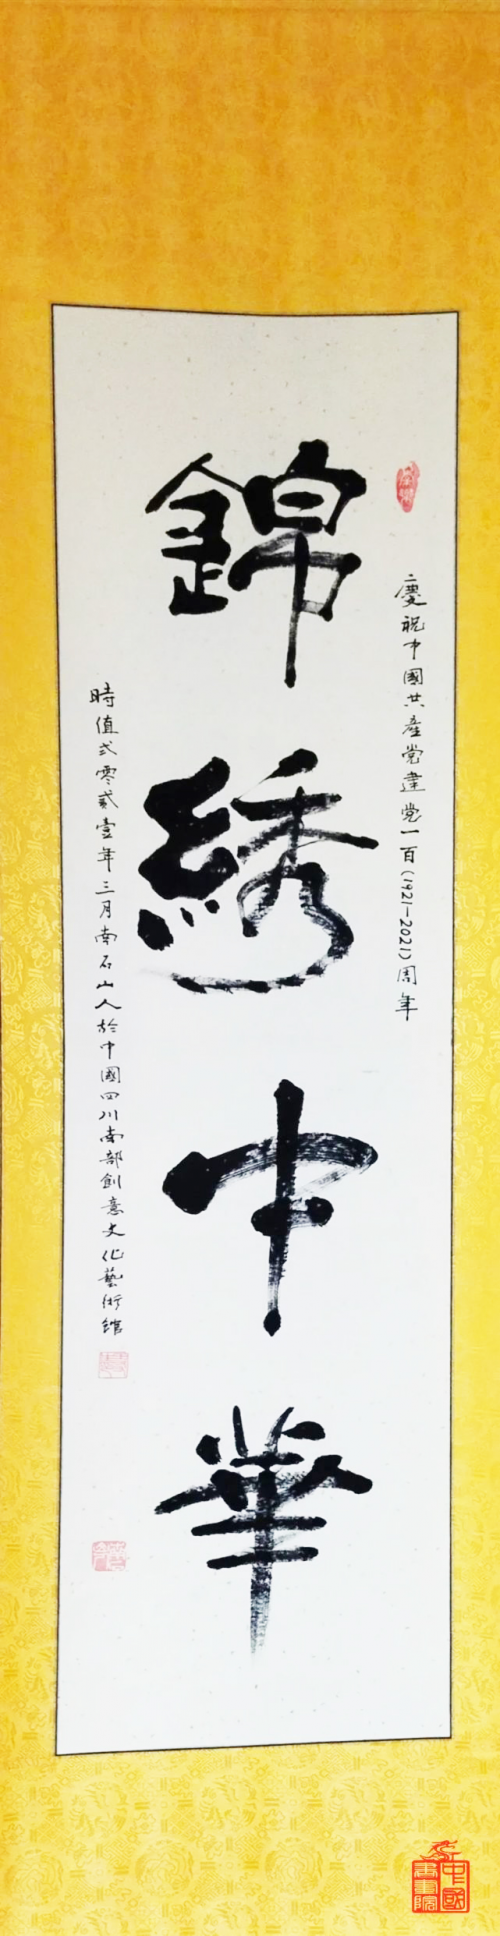 慶祝中國共產党建党一百(1921—2021)周年
錦綉中华
時值弍零貳壹年三月南石山人於中國四川南部創意文化藝術館
中國書畫院